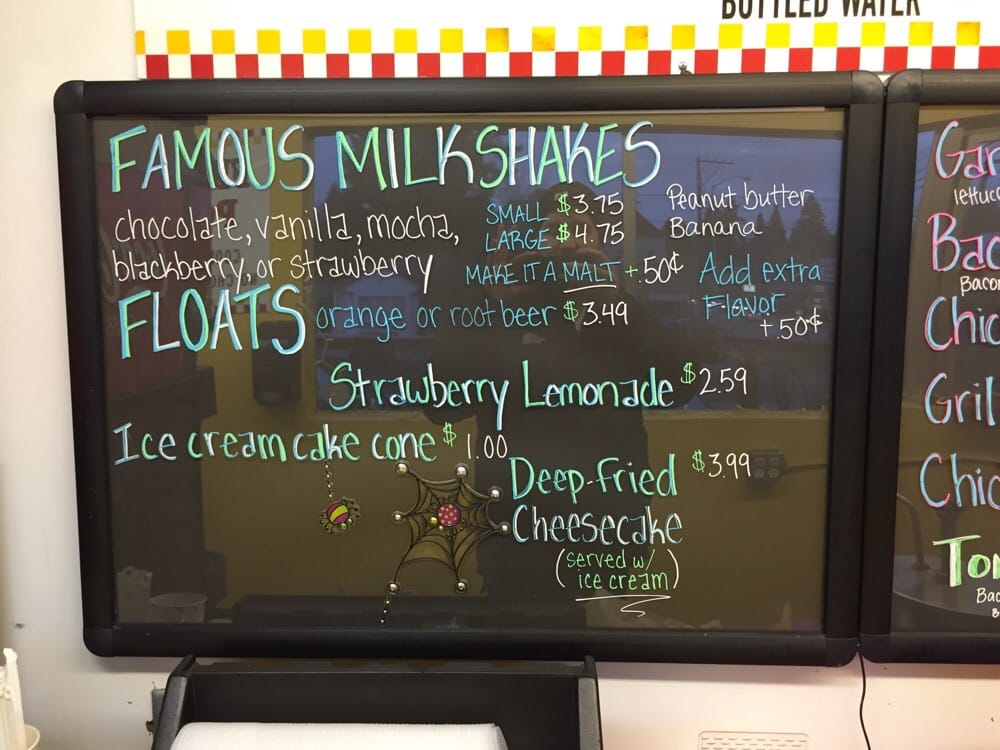 BOTTLED WATER
FAMOUS MILKSHAKES
chocolate, vanilla, mocha,
blackberry, or strawberry
SMALL $3.75
LARGE $4.75
MAKE IT A MALT +.50¢
Peanut butter
Banana
Add extra
Flavor
+.50¢
FLOATS orange or root beer $3.49
Strawberry Lemonade $2.59
Ice cream cake cone $1.00
Deep-Fried $3.99
Cheesecake
(served w/
ice cream)
Gar
lettuc
Bac
Bacon
Chic
Gril
Chic
Tor
Bac